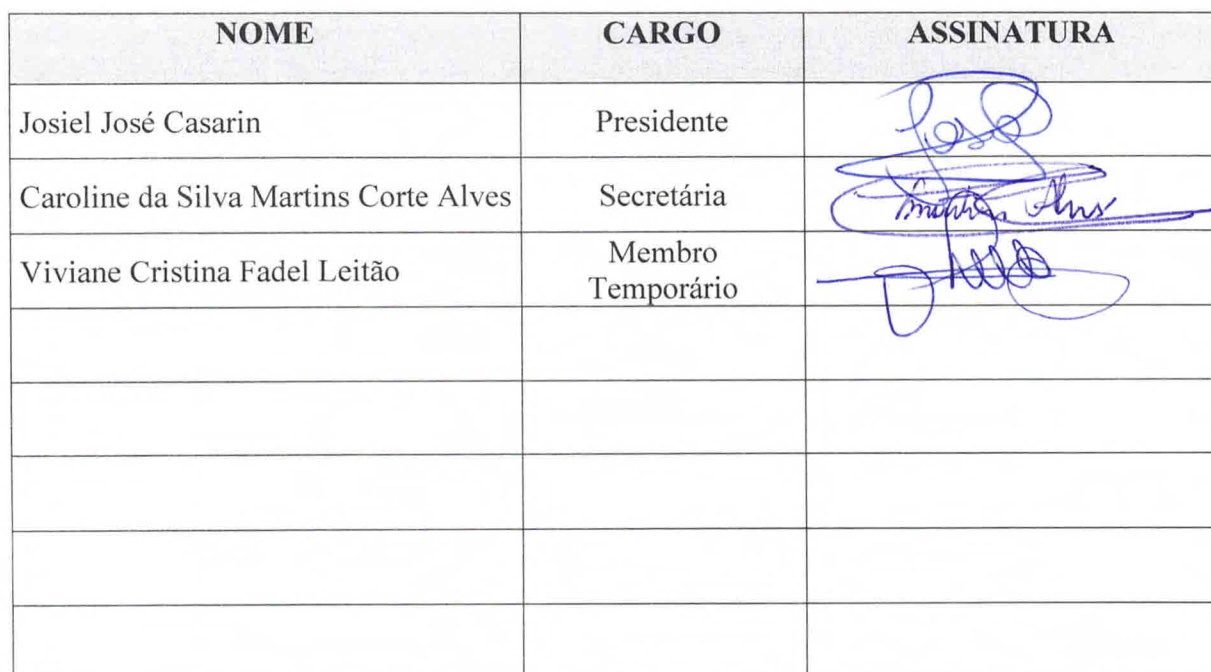 NOME CARGO ASSINATURA
Josiel José Casarin Presidente
Caroline da Silva Martins Corte Alves Secretária
Viviane Cristina Fadel Leitão Membro
Temporário